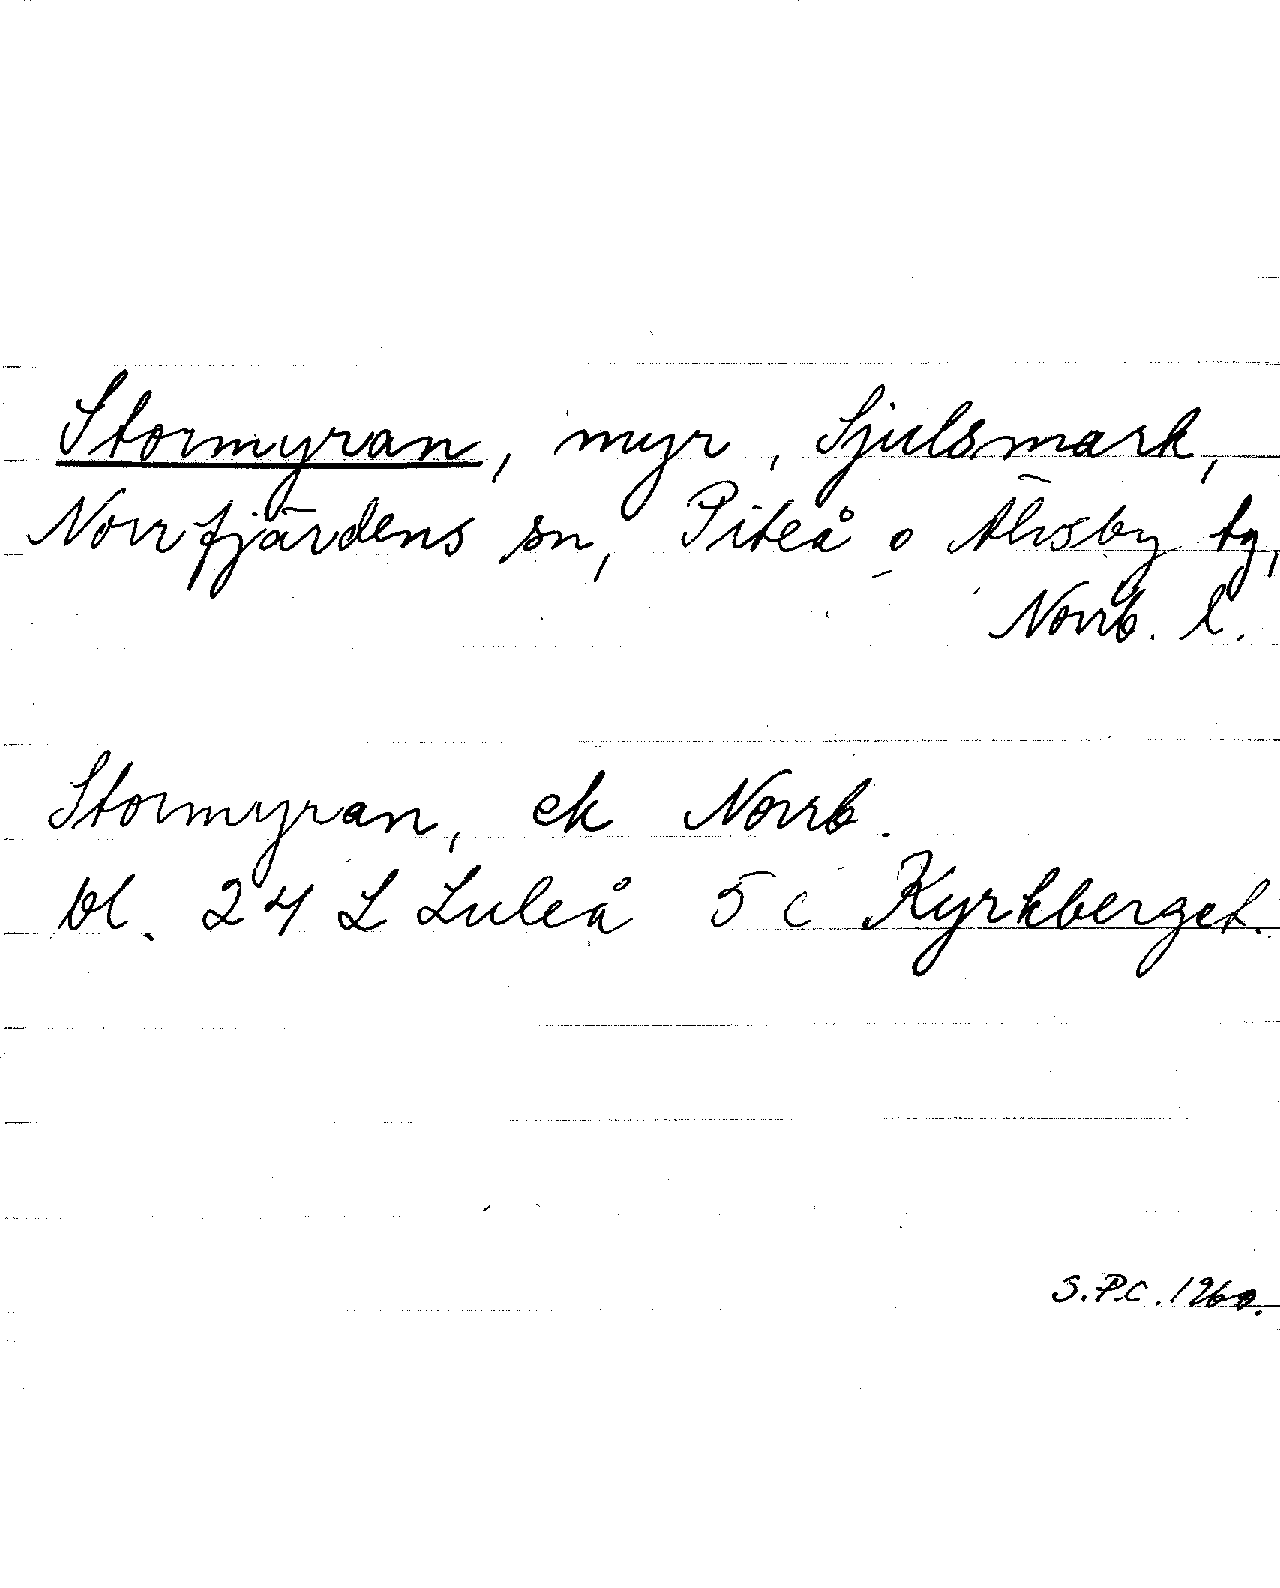 Stormyran, myr, Sjulsmark,
Norrfjärdens sn, Piteå o Älvsby tg,
Norrb. l.
Stormyran, ek Norrb.
bl. 24 L Luleå 5 c Kyrkberget.
S.P.C. 1960.